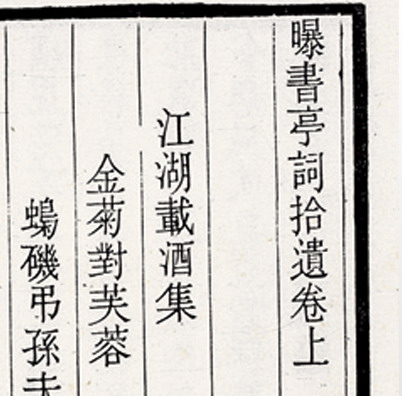 曝書亭詞拾遺卷上
江湖載酒集
金菊對芙蓉
蟂磯弔孫夫